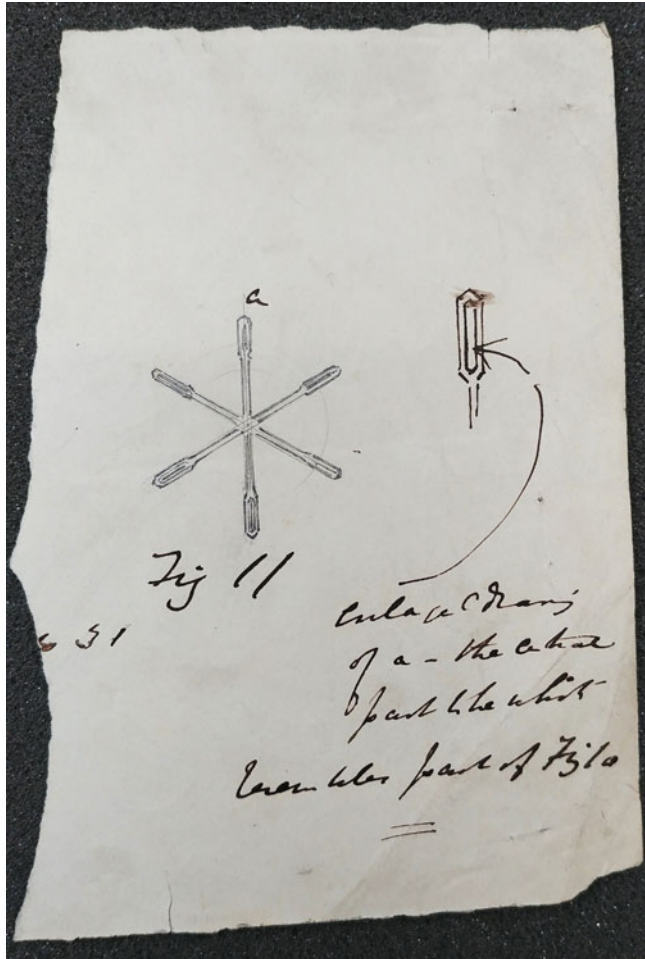 a
Fig 11
31
enlarged draw[in]g
of a - the central
part the whole
resembles part of Fig 10